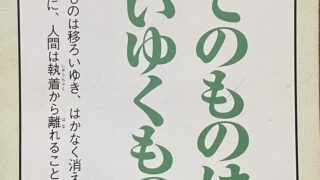 てのものは
いゆくもの
ものは移ろいゆき、はかなく消え
に、人間は執着から離れること